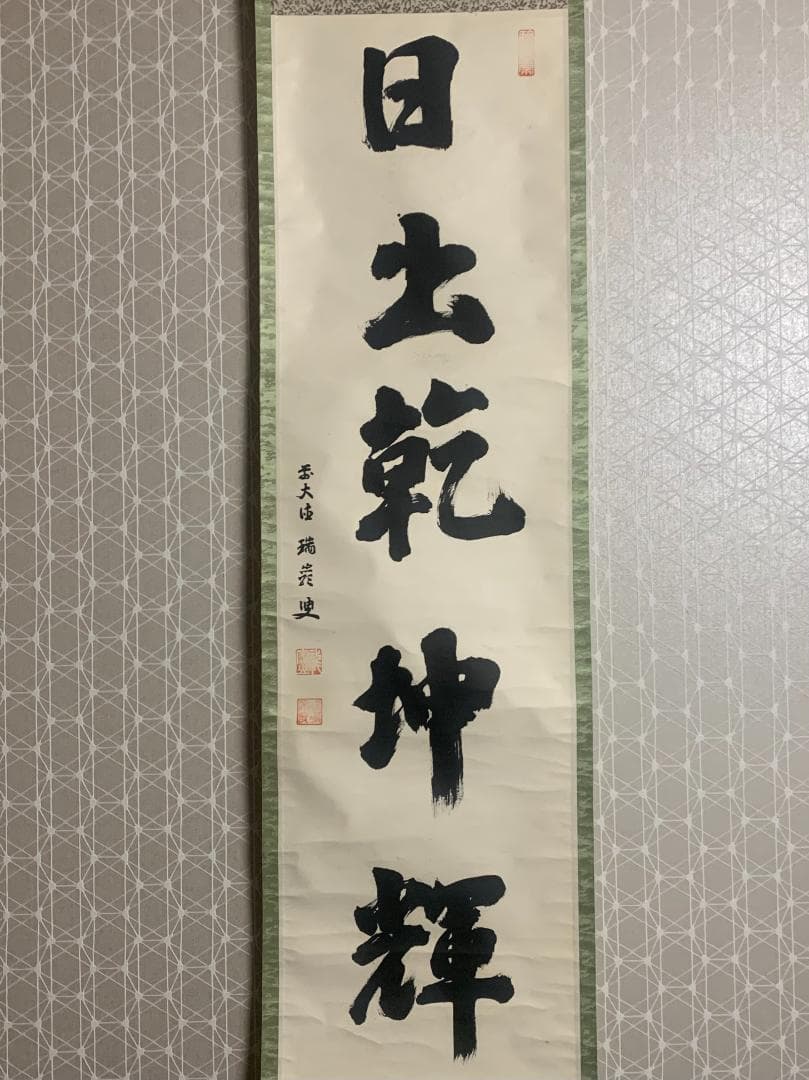 日出乾坤輝
前大徳 瑞巌叟